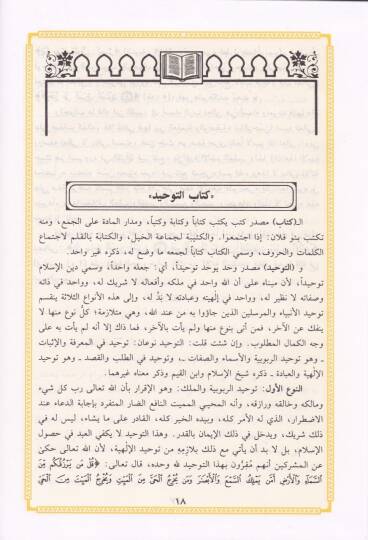 «كتاب التوحيد»
الـ(كتاب) مصدر كتب يكتب كتاباً وكتابة وكتباً، ومدار المادة على الجمع، ومنه
تكتب بنو فلان: إذا اجتمعوا. والكتيبة لجماعة الخيل، والكتابة بالقلم لاجتماع
الكلمات والحروف، وسمي الكتاب كتاباً لجمعه ما وضع له، ذكره غير واحد.
و (التوحيد) مصدر وحد يوحد توحيداً، أي: جعله واحداً، وسمي دين الإسلام
توحيداً، لأن مبناه على أن الله واحد في ملكه وأفعاله لا شريك له، وواحد في ذاته
وصفاته لا نظير له، وواحد في إلهيته وعبادته لا ندّ له، وإلى هذه الأنواع الثلاثة ينقسم
توحيد الأنبياء والمرسلين الذين جاؤوا به من عند الله، وهي متلازمة؛ كلُّ نوع منها لا
ينفك عن الآخر، فمن أتى بنوع منها ولم يأت بالآخر، فما ذاك إلا أنه لم يأت به على
وجه الكمال المطلوب. وإن شئت قلت: التوحيد نوعان: توحيد في المعرفة والإثبات
ـ وهو توحيد الربوبية والأسماء والصفات ـ، وتوحيد في الطلب والقصد ـ وهو توحيد
الإلهية والعبادة ـ ذكره شيخ الإسلام وابن القيم وذكر معناه غيرهما.
النوع الأول: توحيد الربوبية والملك: وهو الإقرار بأن الله تعالى رب كل شيء
ومالكه وخالقه ورازقه، وأنه المحيي المميت النافع الضار المتفرد بإجابة الدعاء عند
الاضطرار، الذي له الأمر كله، وبيده الخير كله، القادر على ما يشاء، ليس له في
ذلك شريك، ويدخل في ذلك الإيمان بالقدر. وهذا التوحيد لا يكفي العبد في حصول
الإسلام، بل لا بد أن يأتي مع ذلك بلازمه من توحيد الإلهية، لأن الله تعالى حكى
عن المشركين أنهم مُقِرُّون بهذا التوحيد لله وحده، قال تعالى: ﴿قُلْ مَن يَرْزُقُكُم مِّنَ
السَّمَاءِ وَالْأَرْضِ أَمَّن يَمْلِكُ السَّمْعَ وَالْأَبْصَارَ وَمَن يُخْرِجُ الْحَيَّ مِنَ الْمَيِّتِ وَيُخْرِجُ الْمَيِّتَ مِنَ الْحَيِّ
١٨